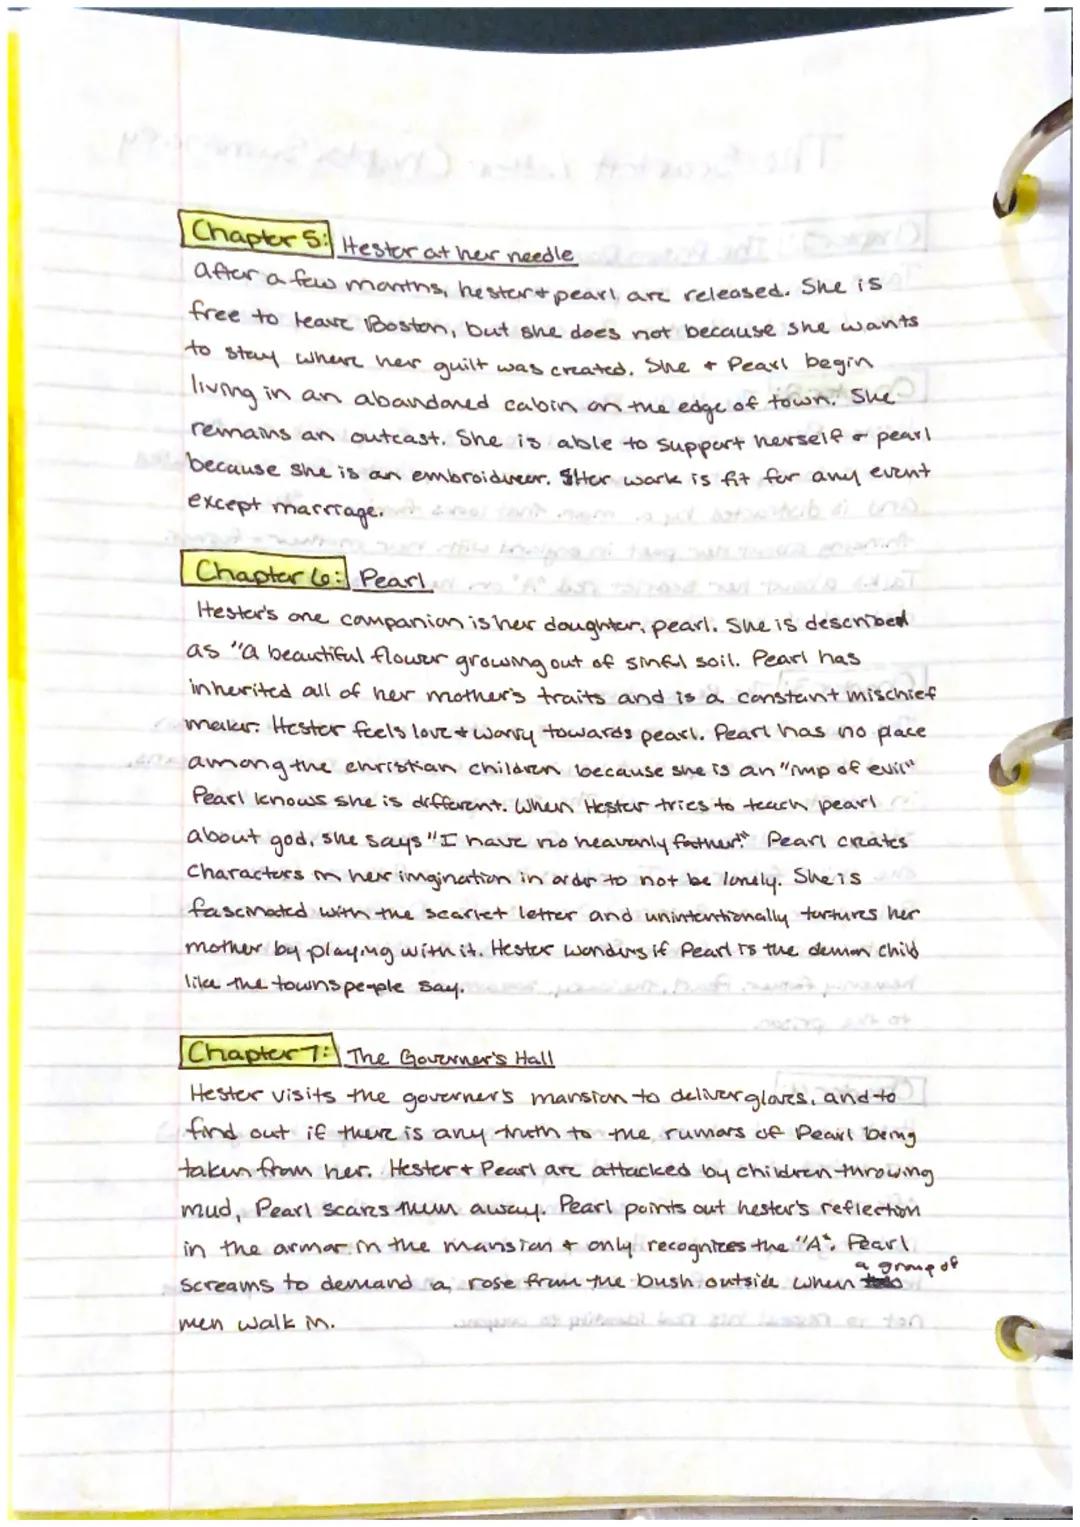 Chapter 5: Hester at her needle
After a few months, hester + pearl are released. She is
free to leave Boston, but she does not because she wants
to stay where her guilt was created. She + Pearl begin
living in an abandoned cabin on the edge of town. She
remains an outcast. She is able to support herself + pearl
because she is an embroiderer. Her work is fit for any event
except marriage.
Chapter 6: Pearl
Hester's one companion is her daughter, pearl. She is described
as "a beautiful flower growing out of sinful soil. Pearl has
inherited all of her mother's traits and is a constant mischief
maker. Hester feels love + worry towards pearl. Pearl has no place
among the christian children because she is an "imp of evil"
Pearl knows she is different. When Hester tries to teach pearl
about god, she says "I have no heavenly father!" Pearl creates
Characters in her imgination in order to not be lonely. She is
fascinated with the scarlet letter and unintentionally tortures her
mother by playing with it. Hester wonders if Pearl is the demon child
like the townspeople say.
Chapter 7: The Governer's Hall
Hester visits the governer's mansion to deliver gloves, and to
find out if there is any truth to the rumors of Pearl being
taken from her. Hester + Pearl are attacked by children throwing
mud, Pearl scares them away. Pearl points out hester's reflection
in the armor in the mansion + only recognizes the "A". Pearl
screams to demand a rose from the bush outside when a group of
men walk in.